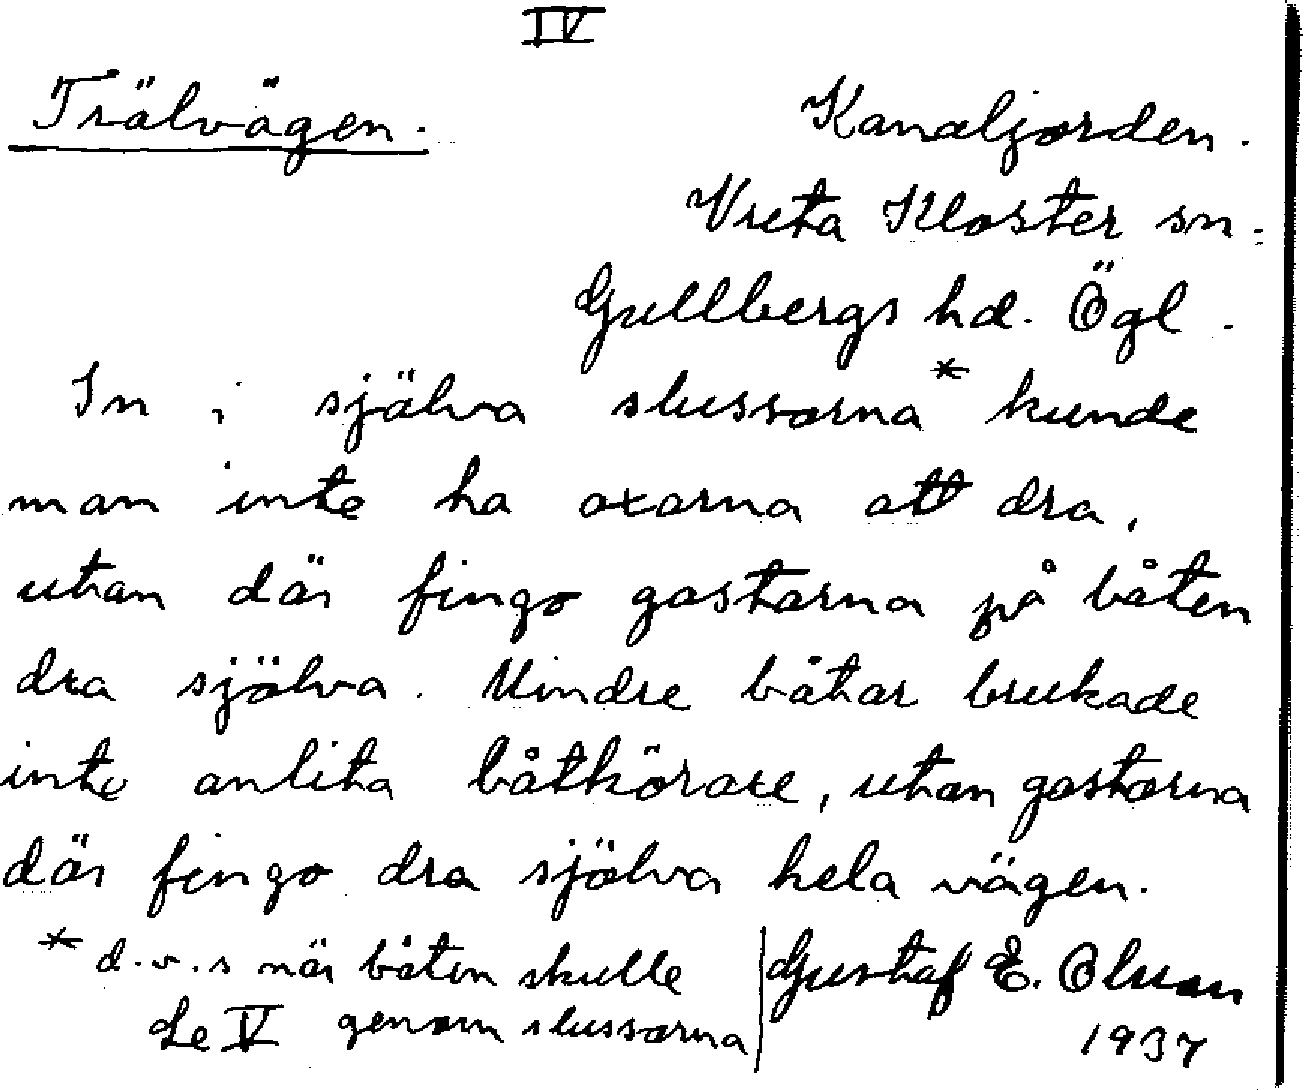 IV
Trälvägen.
Kanaljorden.
Vreta Kloster sn.
Gullbergs hd. Ögl.
In i själva slussarna* kunde
man inte ha oxarna att dra,
utan där fingo gastarna på båten
dra själva. Mindre båtar brukade
inte anlita båtkörare, utan gastarna
där fingo dra själva hela vägen.
* d.v.s när båten skulle
genom slussarna
Se V
Gustaf E. Olsson
1937